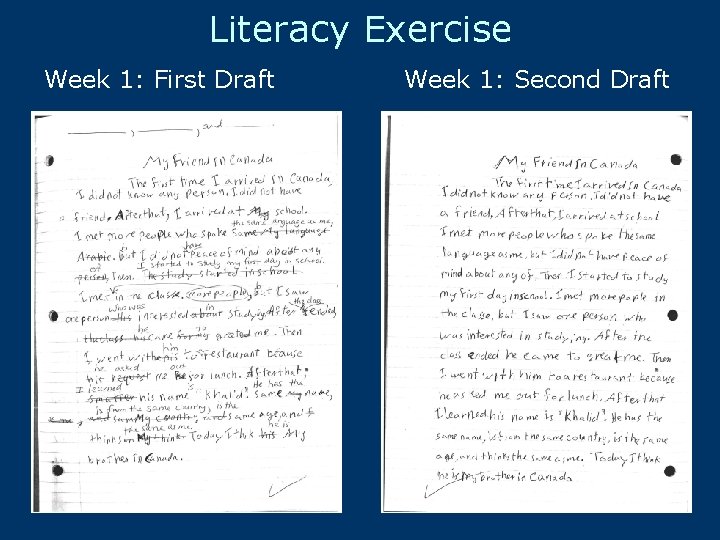 Literacy Exercise
Week 1: First Draft
Week 1: Second Draft
and
My Friend In Canada
The first time I arrived In Canada,
I did not know any person, I did not have
friend, After that, I arrived at my school.
the same language as me,
I met more people who spoke same My language
Arabic. but I did not have peace of mind about any
I started to study my first day in school.
person, Then. The study started in school
I met in the class, most people, but I saw
who was in the class
one person his interested about studying After ended
the class he came for to greated me. Then
I went with him to restaurant because
he asked out
his request me for lunch. After that
I learned He has the
his name "Khalid" Same my name,
is from the same country, is the
and same My country, and same age, and
the same as me. he is
thinks My think Today I this his My
brother in Canada.
My Friend In Canada
The first time I arrived In Canada
I did not know any Person, I did not have
a friend, After that, I arrived at school
I met more people who spoke the same
language as me, but I did not have peace of
mind about any of. Then I started to study
my first day in school. I met more people in
the class, but I saw one person who
was interested in studying. After the
class ended he came to greated me. Then
I went with him to a restaurant because
he asked me out for lunch. After that
I learned his name is "Khalid" He has the
same name, is from the same country, is the same
age, and thinks the same as me. Today I think
he is my brother in Canada